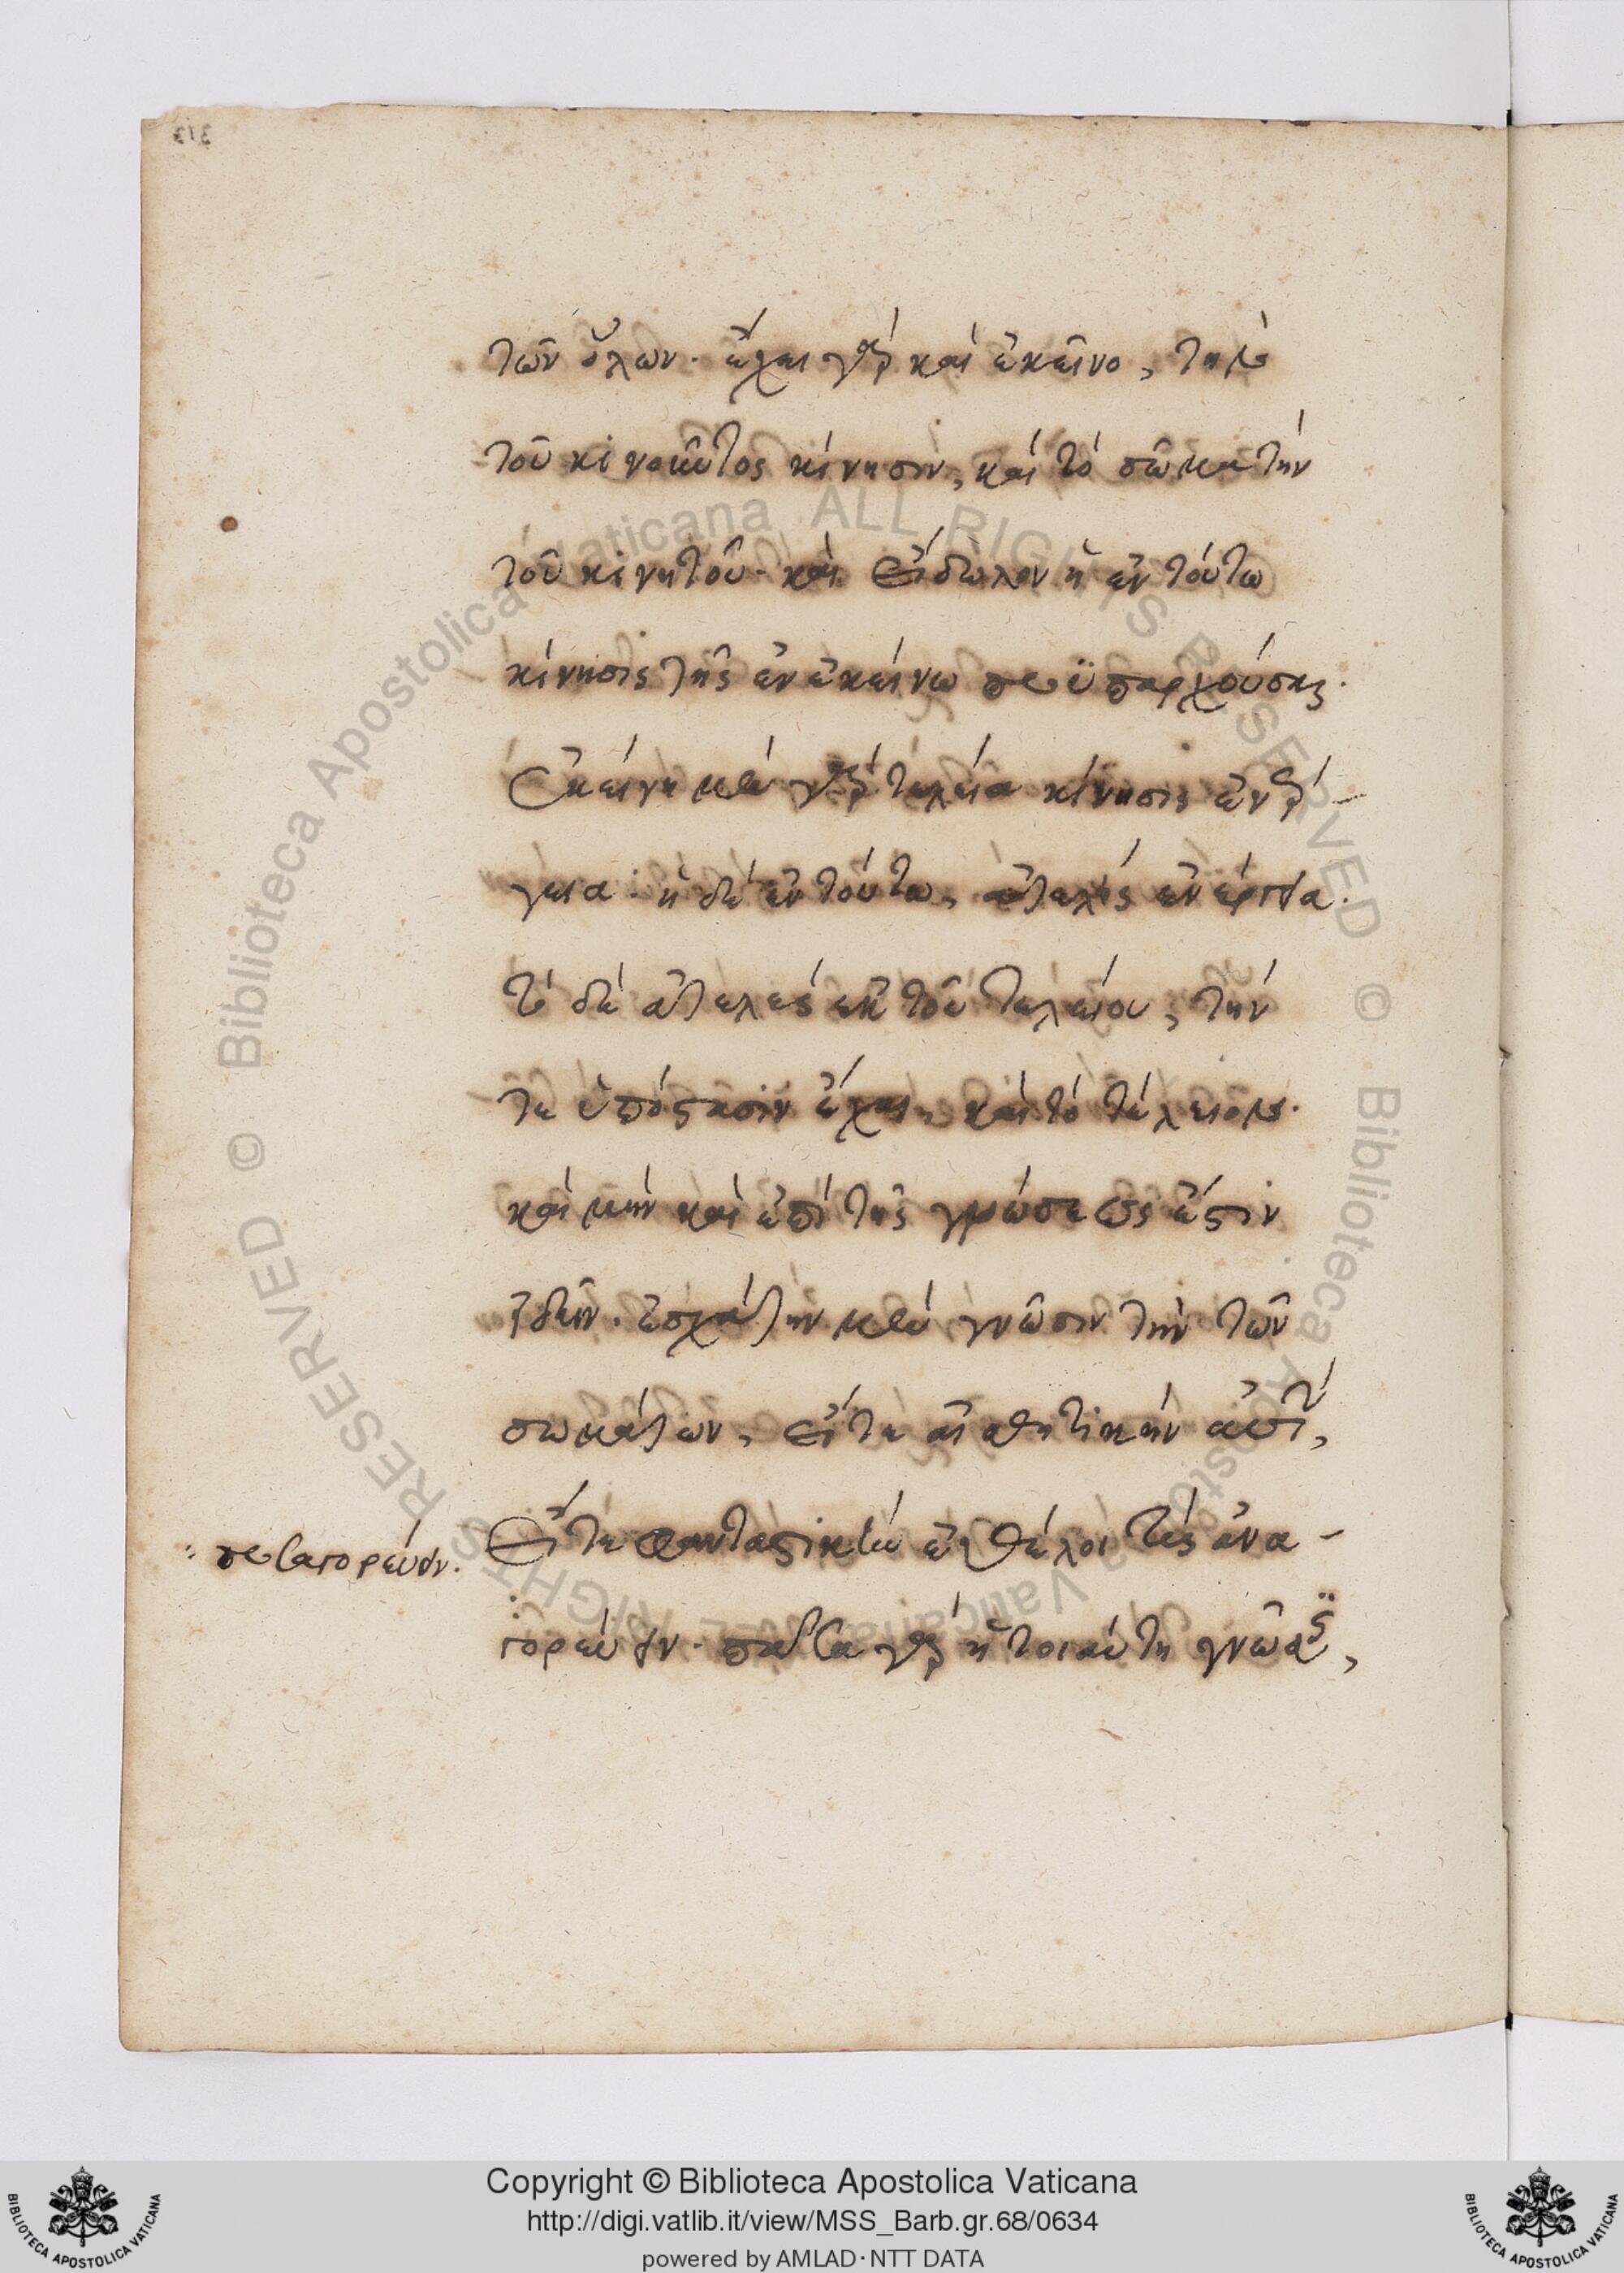 313
τῶν ὅλων. ἔχει γὰρ καὶ ἐκεῖνο, τὴν
τοῦ κινοῦντος κίνησιν, καὶ τὸ σῶμα τὴν
τοῦ κινητοῦ. καὶ εἴδωλον ἡ ἐν τούτω
κίνησις τῆς ἐν ἐκείνω προϋπαρχούσης.
Ἐκείνη μὲν γὰρ τελεία κίνησις ἐνέρ-
γεια. ἡ δὲ ἐν τούτω, ἀτελὴς ἐνέργεια.
τὸ δὲ ἀτελὲς ἐκ τοῦ τελείου, τήν
τε ὑπόστασιν ἔχει, καὶ τὸ τέλειον.
καὶ μὴν καὶ ἐπὶ τῆς γνώσεώς ἐστιν
ἰδεῖν. ἐσχάτην μὲν γνῶσιν τὴν τῶν
σωμάτων, εἴτε αἰσθητικὴν αὐτὴν,
Εἴτε φανταστικὴν ἐθέλοι τις ἀνα-
γορεύειν. πᾶσα γὰρ ἡ τοιαύτη γνῶσις,
προσαγορεύειν.
© Biblioteca Apostolica Vaticana ALL RIGHTS RESERVED
© Biblioteca Apostolica Vaticana ALL RIGHTS RESERVED
BIBLIOTECA APOSTOLICA VATICANA
Copyright © Biblioteca Apostolica Vaticana
http://digi.vatlib.it/view/MSS_Barb.gr.68/0634
powered by AMLAD·NTT DATA
BIBLIOTECA APOSTOLICA VATICANA